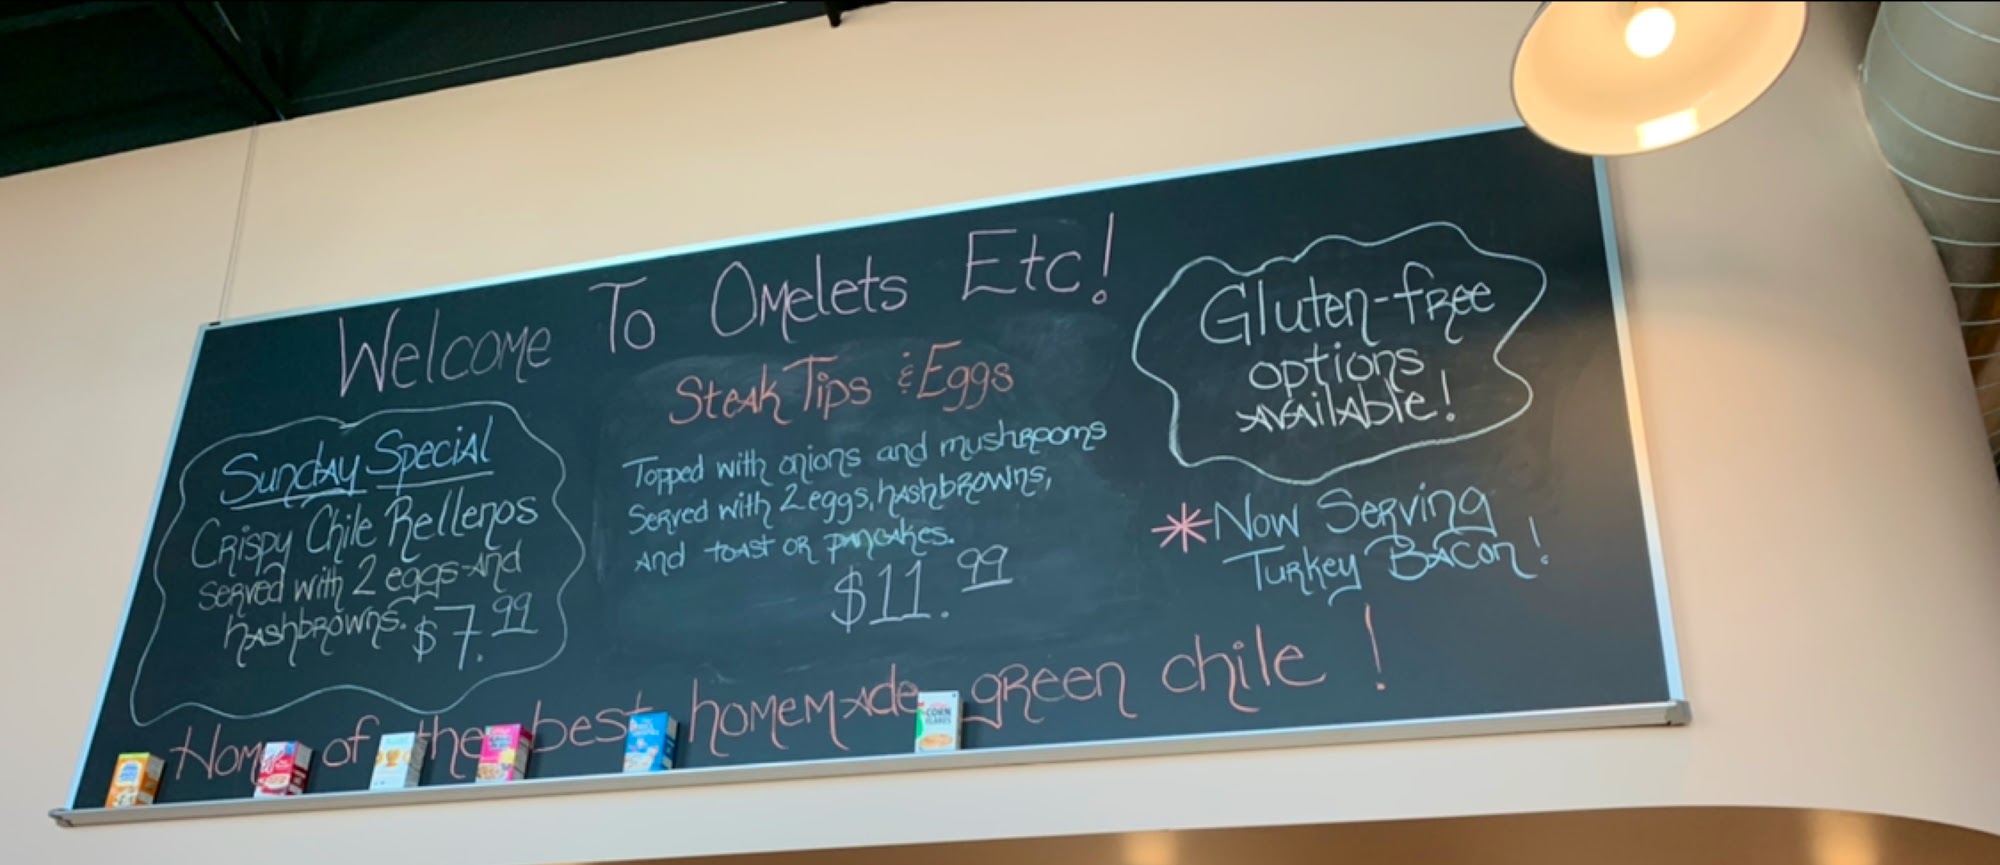 Welcome To Omelets Etc!
Sunday Special
Crispy Chile Rellenos
served with 2 eggs and
hashbrowns. $7.99
Steak Tips & Eggs
Topped with onions and mushrooms
Served with 2 eggs, hashbrowns,
and toast or pancakes.
$11.99
Gluten-free
options
available!
*Now Serving
Turkey Bacon!
Home of the best homemade green chile!
CORN
FLAKES